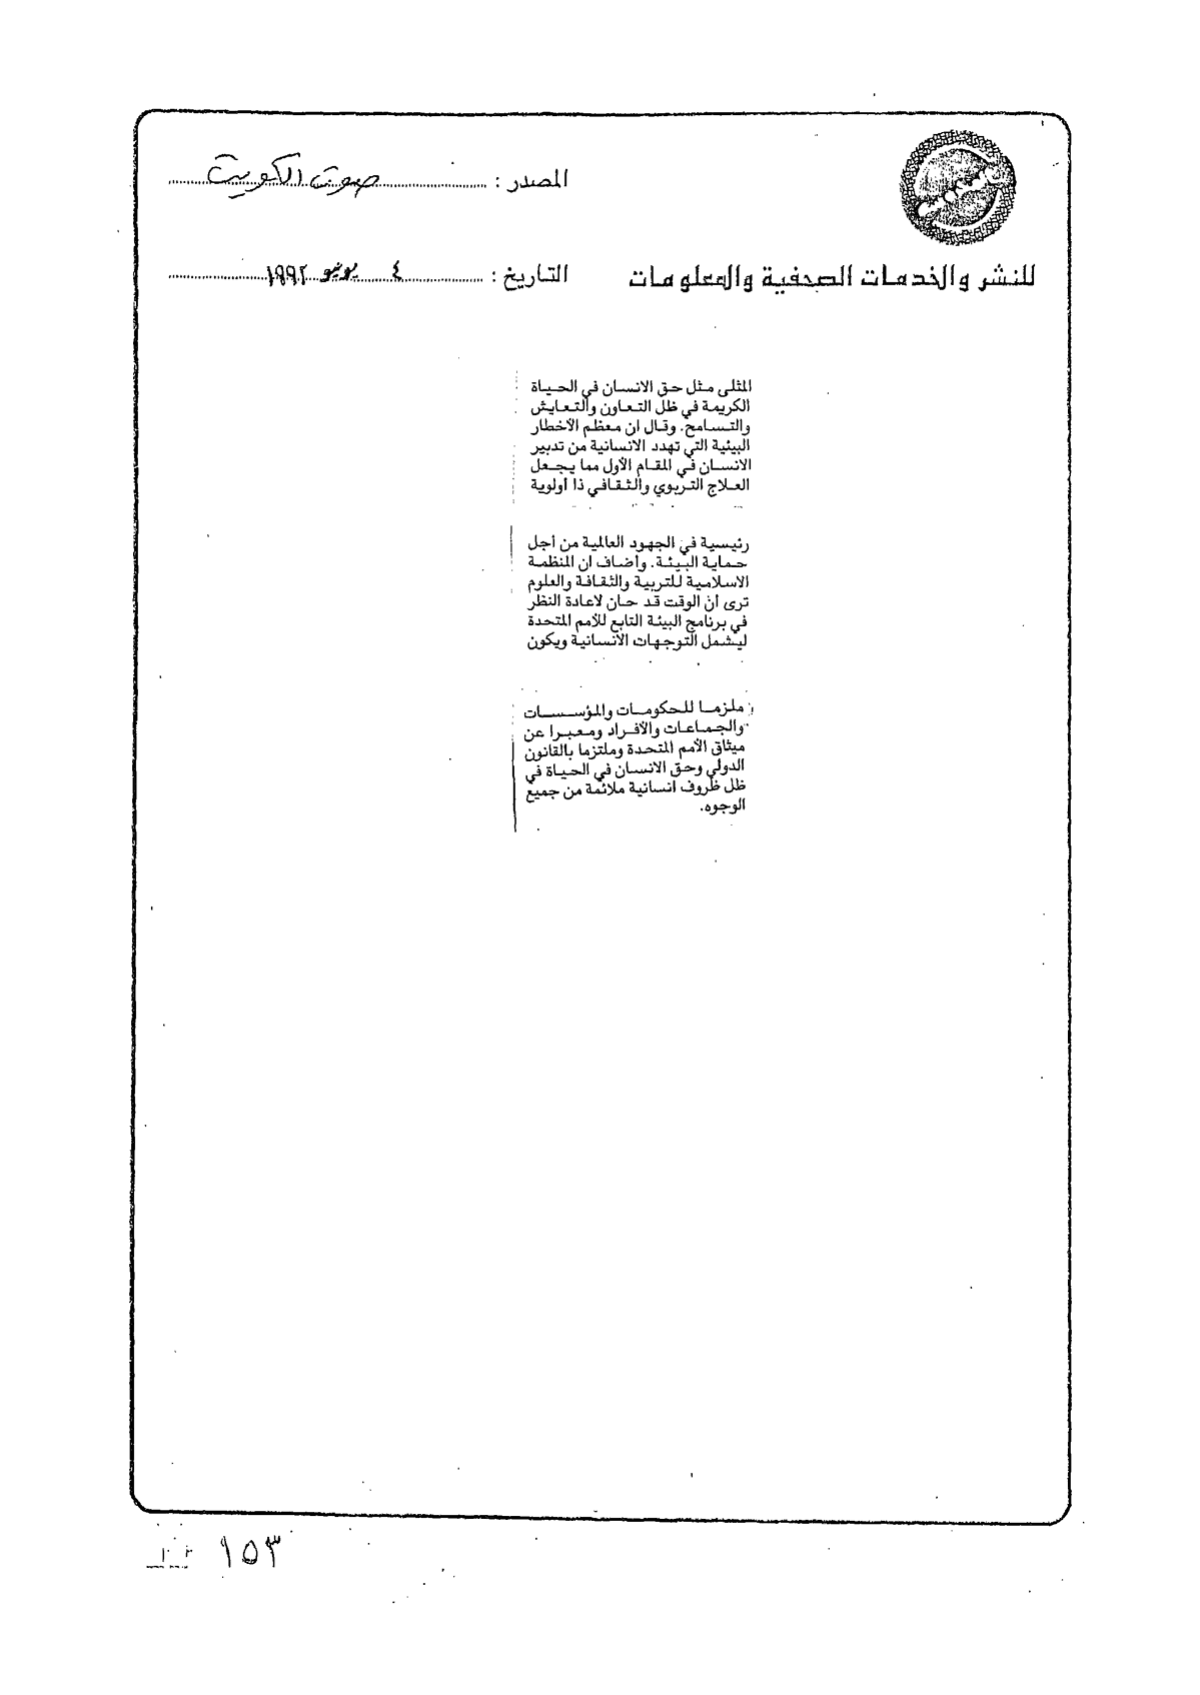 المصدر : صوت الكويت
للنشر والخدمات الصحفية والمعلومات
التاريخ : ٤ يونيو ١٩٩٢
المثلى مثل حق الانسان في الحياة
الكريمة في ظل التعاون والتعايش
والتسامح. وقال ان معظم الأخطار
البيئية التي تهدد الانسانية من تدبير
الانسان في المقام الأول مما يجعل
العلاج التربوي والثقافي ذا اولوية
رئيسية في الجهود العالمية من أجل
حماية البيئة. وأضاف ان المنظمة
الاسلامية للتربية والثقافة والعلوم
ترى أن الوقت قد حان لاعادة النظر
في برنامج البيئة التابع للأمم المتحدة
ليشمل التوجهات الانسانية ويكون
ملزما للحكومات والمؤسسات
والجماعات والأفراد ومعبرا عن
ميثاق الأمم المتحدة وملتزما بالقانون
الدولي وحق الانسان في الحياة في
ظل ظروف انسانية ملائمة من جميع
الوجوه.
١٥٣